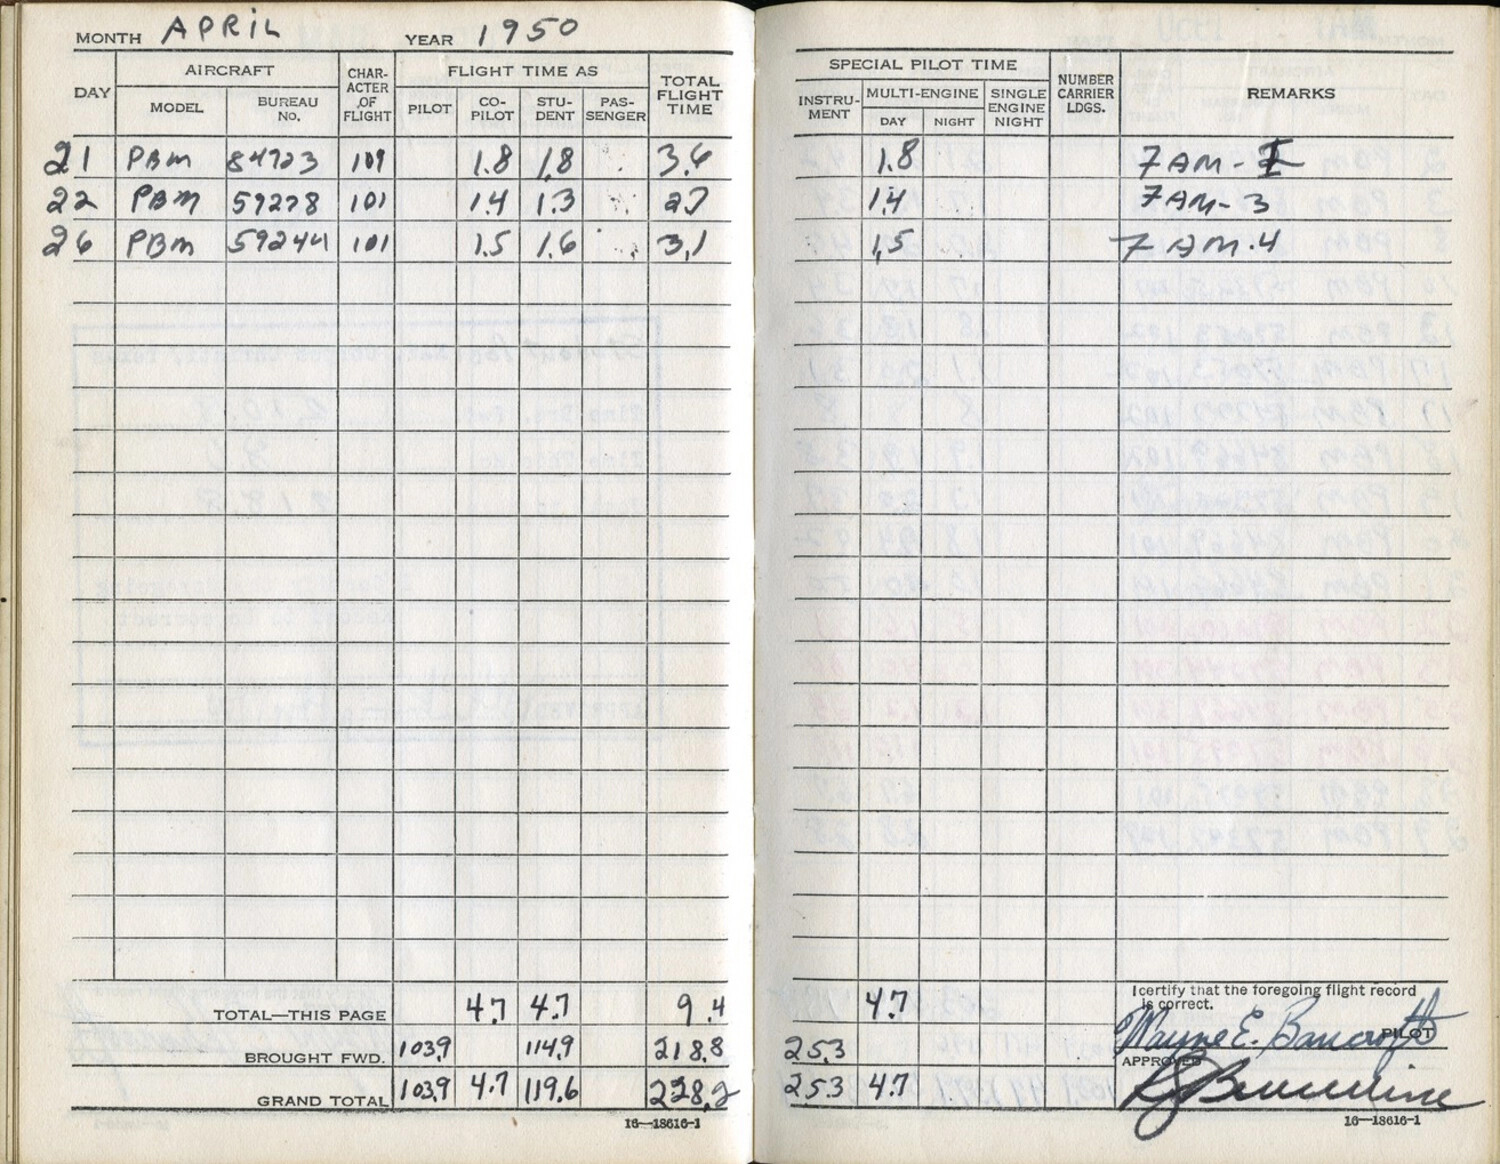 MONTH APRIL YEAR 1950
DAY AIRCRAFT CHAR-ACTER OF FLIGHT FLIGHT TIME AS TOTAL FLIGHT TIME
MODEL BUREAU NO. PILOT CO-PILOT STU-DENT PAS-SENGER
21 PBM 84723 109 1.8 1.8 3.6
22 PBM 59278 101 1.4 1.3 2.7
26 PBM 59244 101 1.5 1.6 3.1
TOTAL—THIS PAGE 4.7 4.7 9.4
BROUGHT FWD. 103.9 114.9 218.8
GRAND TOTAL 103.9 4.7 119.6 228.2
16—18616-1
SPECIAL PILOT TIME NUMBER CARRIER LDGS. REMARKS
INSTRU-MENT MULTI-ENGINE SINGLE ENGINE NIGHT
DAY NIGHT
1.8 7AM-I
1.4 7AM-3
1.5 7AM.4
4.7 I certify that the foregoing flight record
is correct.
25.3 Wayne E. Bancroft PILOT
APPROVED
25.3 4.7
16—18616-1